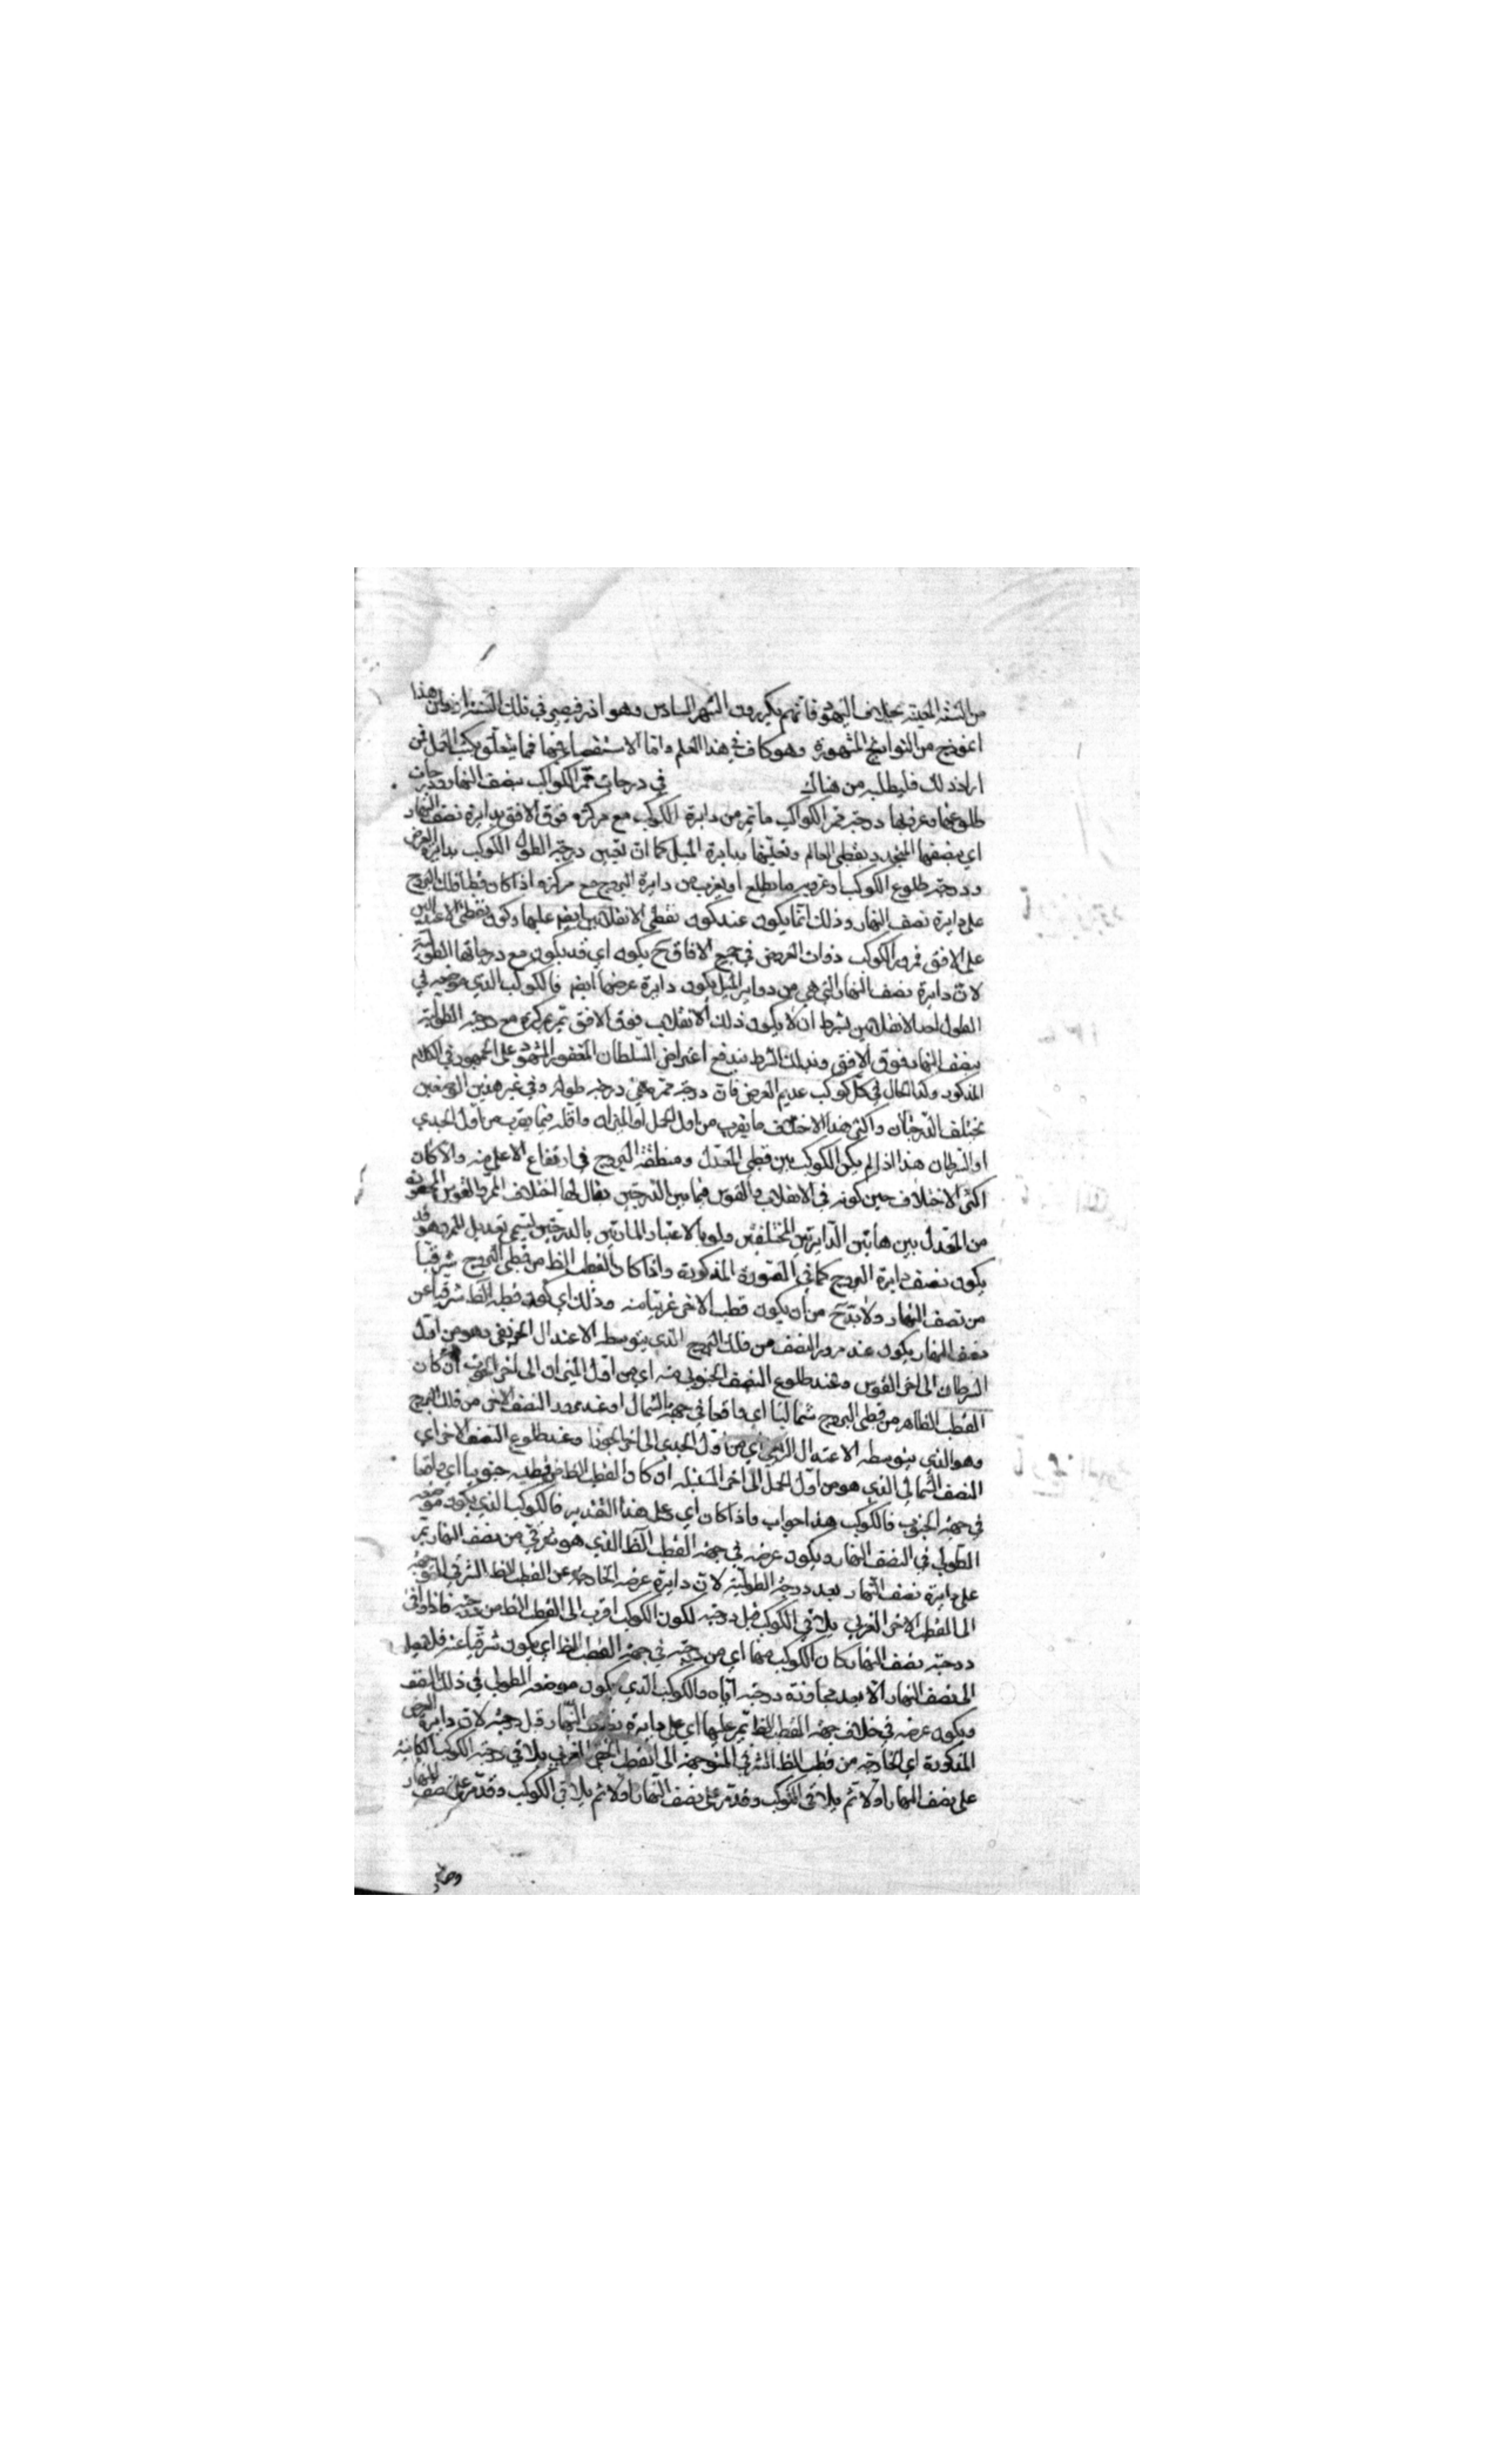 من السنة المعينة بخلاف اليهود فانهم يكررون الشهر السادس وهو اذر فيصير في تلك السنة اذران هذا
انموذج من التواريخ المشهورة وهو كاف في هذا العلم واما الاستقصاء فيها فما يتعلق بكتب العمل فمن
اراد ذلك فليطلبه من هناك في درجات ممر الكواكب بنصف النهار ودرجات
طلوعها وغروبها درجة ممر الكواكب ما تمر من دايرة الكوكب مع مركزه فوق الافق بدايرة نصف النهار
اي بنصفها المتحدد بقطبي العالم وتعينها بدايرة الميل كما ان تعيين درجة الطول الكوكب بدايرة العرض
ودرجة طلوع الكوكب او غروبه ما يطلع او يغرب من دايرة البروج مع مركزه اذا كان قطبا فلك البروج
على دايرة نصف النهار وذلك انما يكون عند كون نقطتي الانقلابين ايضا عليها وكون نقطتي الاعتدالين
على الافق فمرور الكوكب ذوات العروض في جميع الافاق ح يكون اي قد يكون مع درجاتها الطولية
لان دايرة نصف النهار التي هي من دواير الميل يكون دايرة عرضها ايضا فالكوكب الذي موضعه في
الطول احد الانقلابين بشرط ان لا يكون ذلك الانقلاب فوق الافق تمر مركزه مع درجته الطولية
بنصف النهار فوق الافق وبذلك الشرط يندفع اعتراض السلطان المغفور المشهور على الجمهور في الكلام
المذكور وكذا الحال في كل كوكب عديم العرض فان درجة ممره هي درجة طوله وفي غير هذين الموضعين
تختلف الدرجتان واكثر هذا الاختلاف ما يقرب من اول الحمل او الميزان واقله فيما يقرب من اول الجدي
او السرطان هذا اذا لم يكن الكوكب بين قطبي المعدل ومنطقة البروج في ارتفاع الاعلى منه والا كان
اكثر الاختلاف حين كونه في الانقلاب والقوس فيما بين الدرجتين يقال لها اختلاف الممر والقوس المحصورة
من المعدل بين هاتين الدايرتين المختلفتين ولو بالاعتبار المارتين بالدرجتين تسمى تعديل الممر وهو قد
يكون نصف دايرة البروج كما في الصورة المذكورة واذا كان القطب الظ من قطبي البروج شرقيا
من نصف النهار ولا بد ح من ان يكون قطب الاخر غربيا منه وذلك اي كون قطبه الظ شرقيا عن
نصف النهار يكون عند مرور النصف من فلك البروج الذي يتوسطه الاعتدال الخريفي وهو من اول
السرطان الى اخر القوس وعند طلوع النصف الجنوبي منه اي من اول الميزان الى اخر الحوت ان كان
القطب الظاهر من قطبي البروج شماليا اي واقعا في جهة الشمال او عند مرور النصف الاخر من فلك البروج
وهو الذي يتوسطه الاعتدال الربيعي اي من اول الجدي الى اخر الجوزا وعند طلوع النصف الاخر اي
النصف الشمالي الذي هو من اول الحمل الى اخر السنبلة ان كان القطب الظ من قطبيه جنوبيا اي واقعا
في جهة الجنوب فالكوكب هذا جواب واذا كان اي وعلى هذا التقدير فالكوكب الذي يكون موضعه
الطولي في النصف النهار ويكون عرضه في جهة القطب الظ الذي هو شرقي من نصف النهار تمر
على دايرة نصف النهار بعد درجته الطولية لان دايرة عرضه الخارجة عن القطب الظ الشرقي المتوجهة
الى القطب الاخر الغربي يلاقي الكوكب قبل درجته لكون الكوكب اقرب الى القطب الظ من درجته فاذا وافى
درجته نصف النهار كان الكوكب منها اي من درجته في جهة القطب الظ اي يكون شرقيا عنه فلا يصل
الى نصف النهار الا بعد مجاوزة درجته اياه والكوكب الذي يكون موضعه الطولي في ذلك النصف
ويكون عرضه في خلاف جهة القطب الظ تمر عليها اي على دايرة نصف النهار قبل درجته لان دايرة العرض
المذكورة اي الخارجة من قطب الظ الشرقي المتوجهة الى القطب الخفي الغربي يلاقي درجة الكوكب الكاينة
على نصف النهار اولا ثم يلاقي الكوكب وقد مر على نصف النهار اولا ثم يلاقي الكوكب وقد مر على نصف النهار